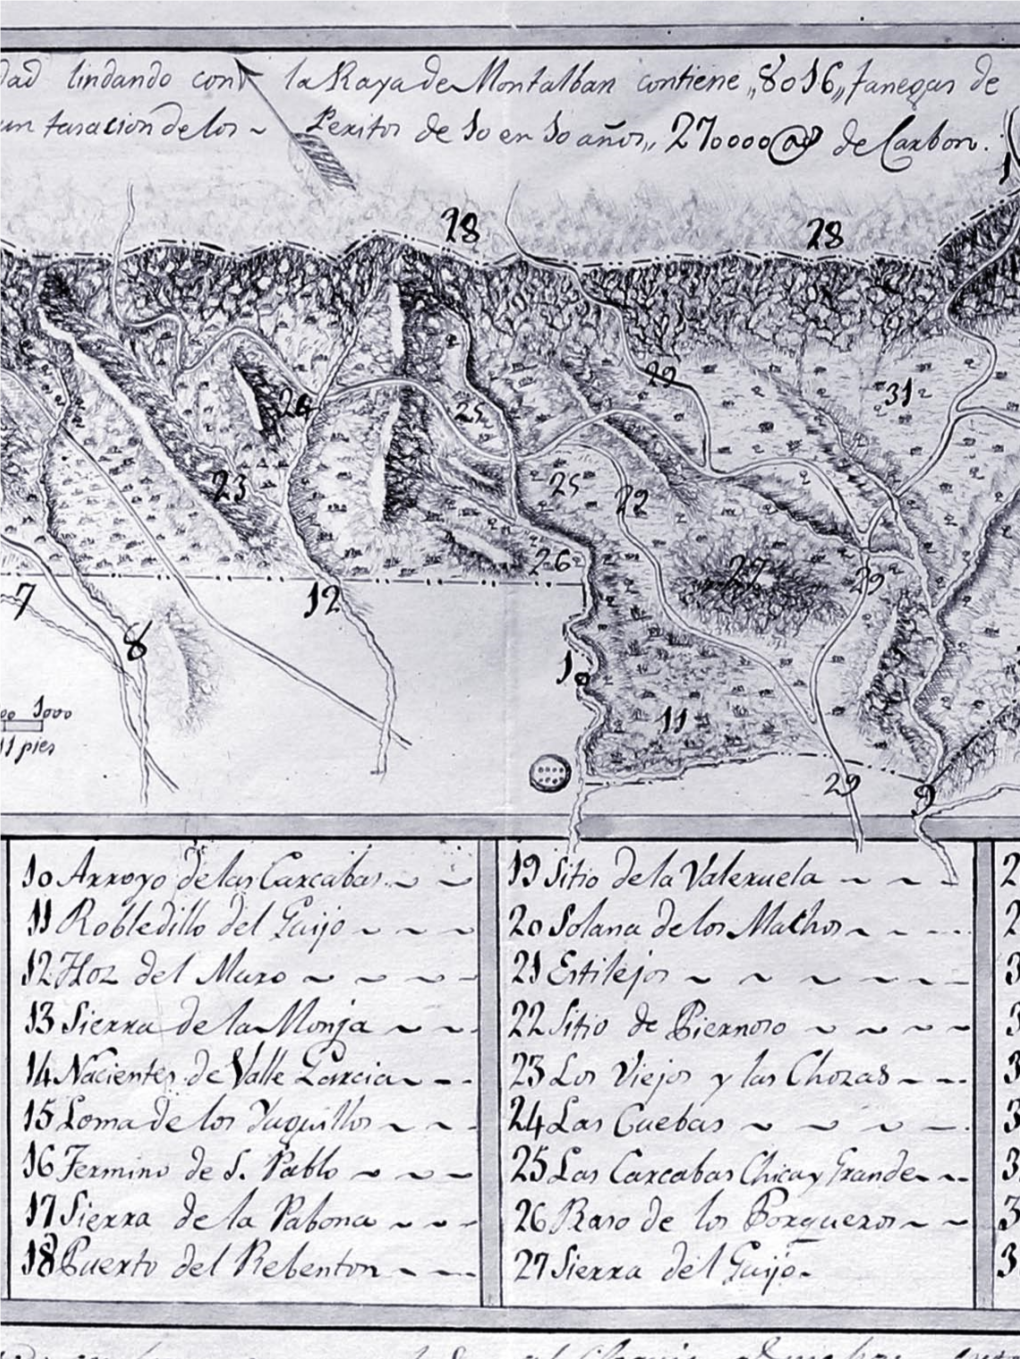 dad lindando con la Raya de Montalban contiene „8016„ fanegas de
un tasacion de los ~ Peritos de 10 en 10 años„ 270000 @ de Carbon.
1
28 28
29 31
24 25
23 25 22
26 27 29
7 12
8
1
11
1000
11 pies
29 9
10 Arroyo de las Carcabas
11 Robledillo del Guijo
12 Hoz del Muro
13 Sierra de la Monja
14 Nacientes de Valle Garcia
15 Loma de los Yuguillos
16 Termino de S. Pablo
17 Sierra de la Pabona
18 Puerto del Rebenton
19 Sitio de la Valeruela
20 Solana de los Machos
21 Estilejos
22 Sitio de Piernoso
23 Los Viejos y las Chozas
24 Las Cuebas
25 Las Carcabas Chica y Grande
26 Raso de los Porqueros
27 Sierra del Guijo.
2
2
3
3
3
3
3
3
3